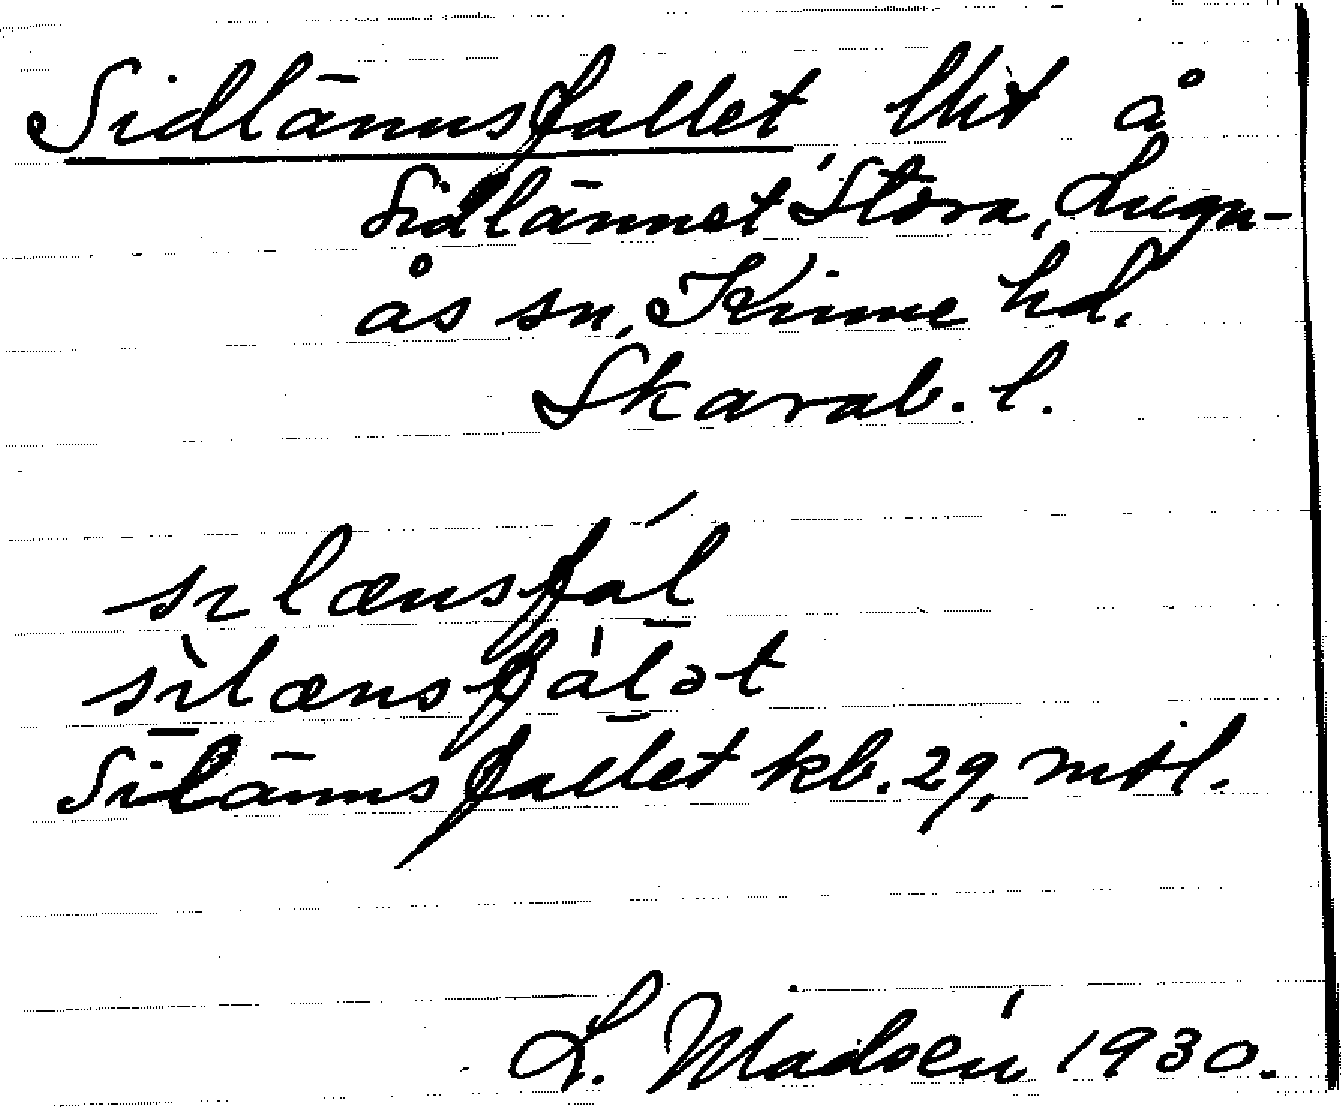 Sidlännsfallet lht å
Sidlännet Stora, Lugn-
ås sn, Kinne hd.
Skarab. l.
sɪlænsfál
sɪ̀lænsfálət
Silännsfallet kb. 29, mtl.
L. Madsén 1930.